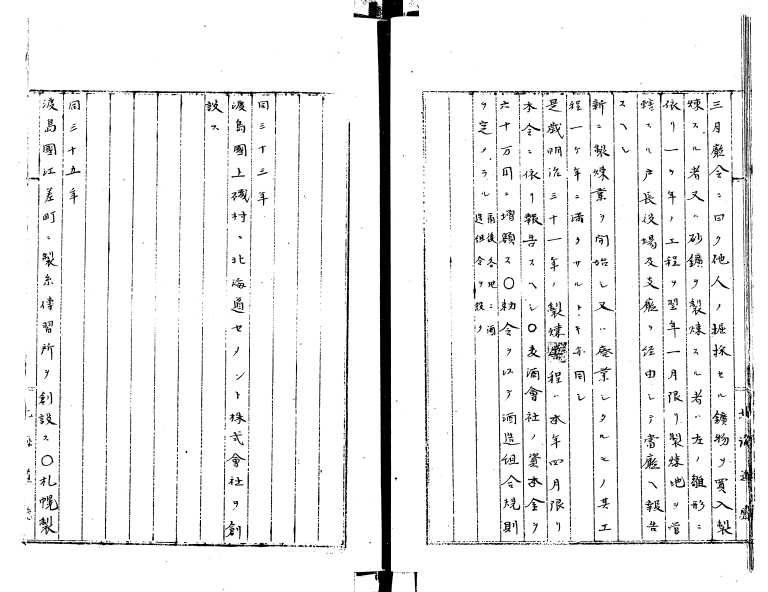 三月廳令ニ曰ク他人ノ掘採セル鑛物ヲ買入製
煉スル者又ハ砂鑛ヲ製煉スル者ハ左ノ雛形ニ
依リ一ケ年ノ工程ヲ翌年一月限リ製煉地ヲ管
轄スル戸長役場及支廳ヲ経由シテ當廳ヘ報告
スヘシ
新ニ製煉業ヲ開始シ又ハ廢業シタルモノ其工
程一ケ年ニ満タサルトキ亦同シ
是歳明治三十一年ノ製煉工程ハ本年四月限リ
本令ニ依リ報告スヘシ〇麦酒會社ノ資本金ヲ
六十万円ニ増額ス〇勅令ヲ以テ酒造組合規則
ヲ定メラル
爾後各地ニ酒
造組合ヲ設ク
北海道廳
同三十三年
渡島國上磯村ニ北海道セメント株式會社ヲ創
設ス
同三十五年
渡島國江差町ニ製糸傳習所ヲ創設ス〇札幌製